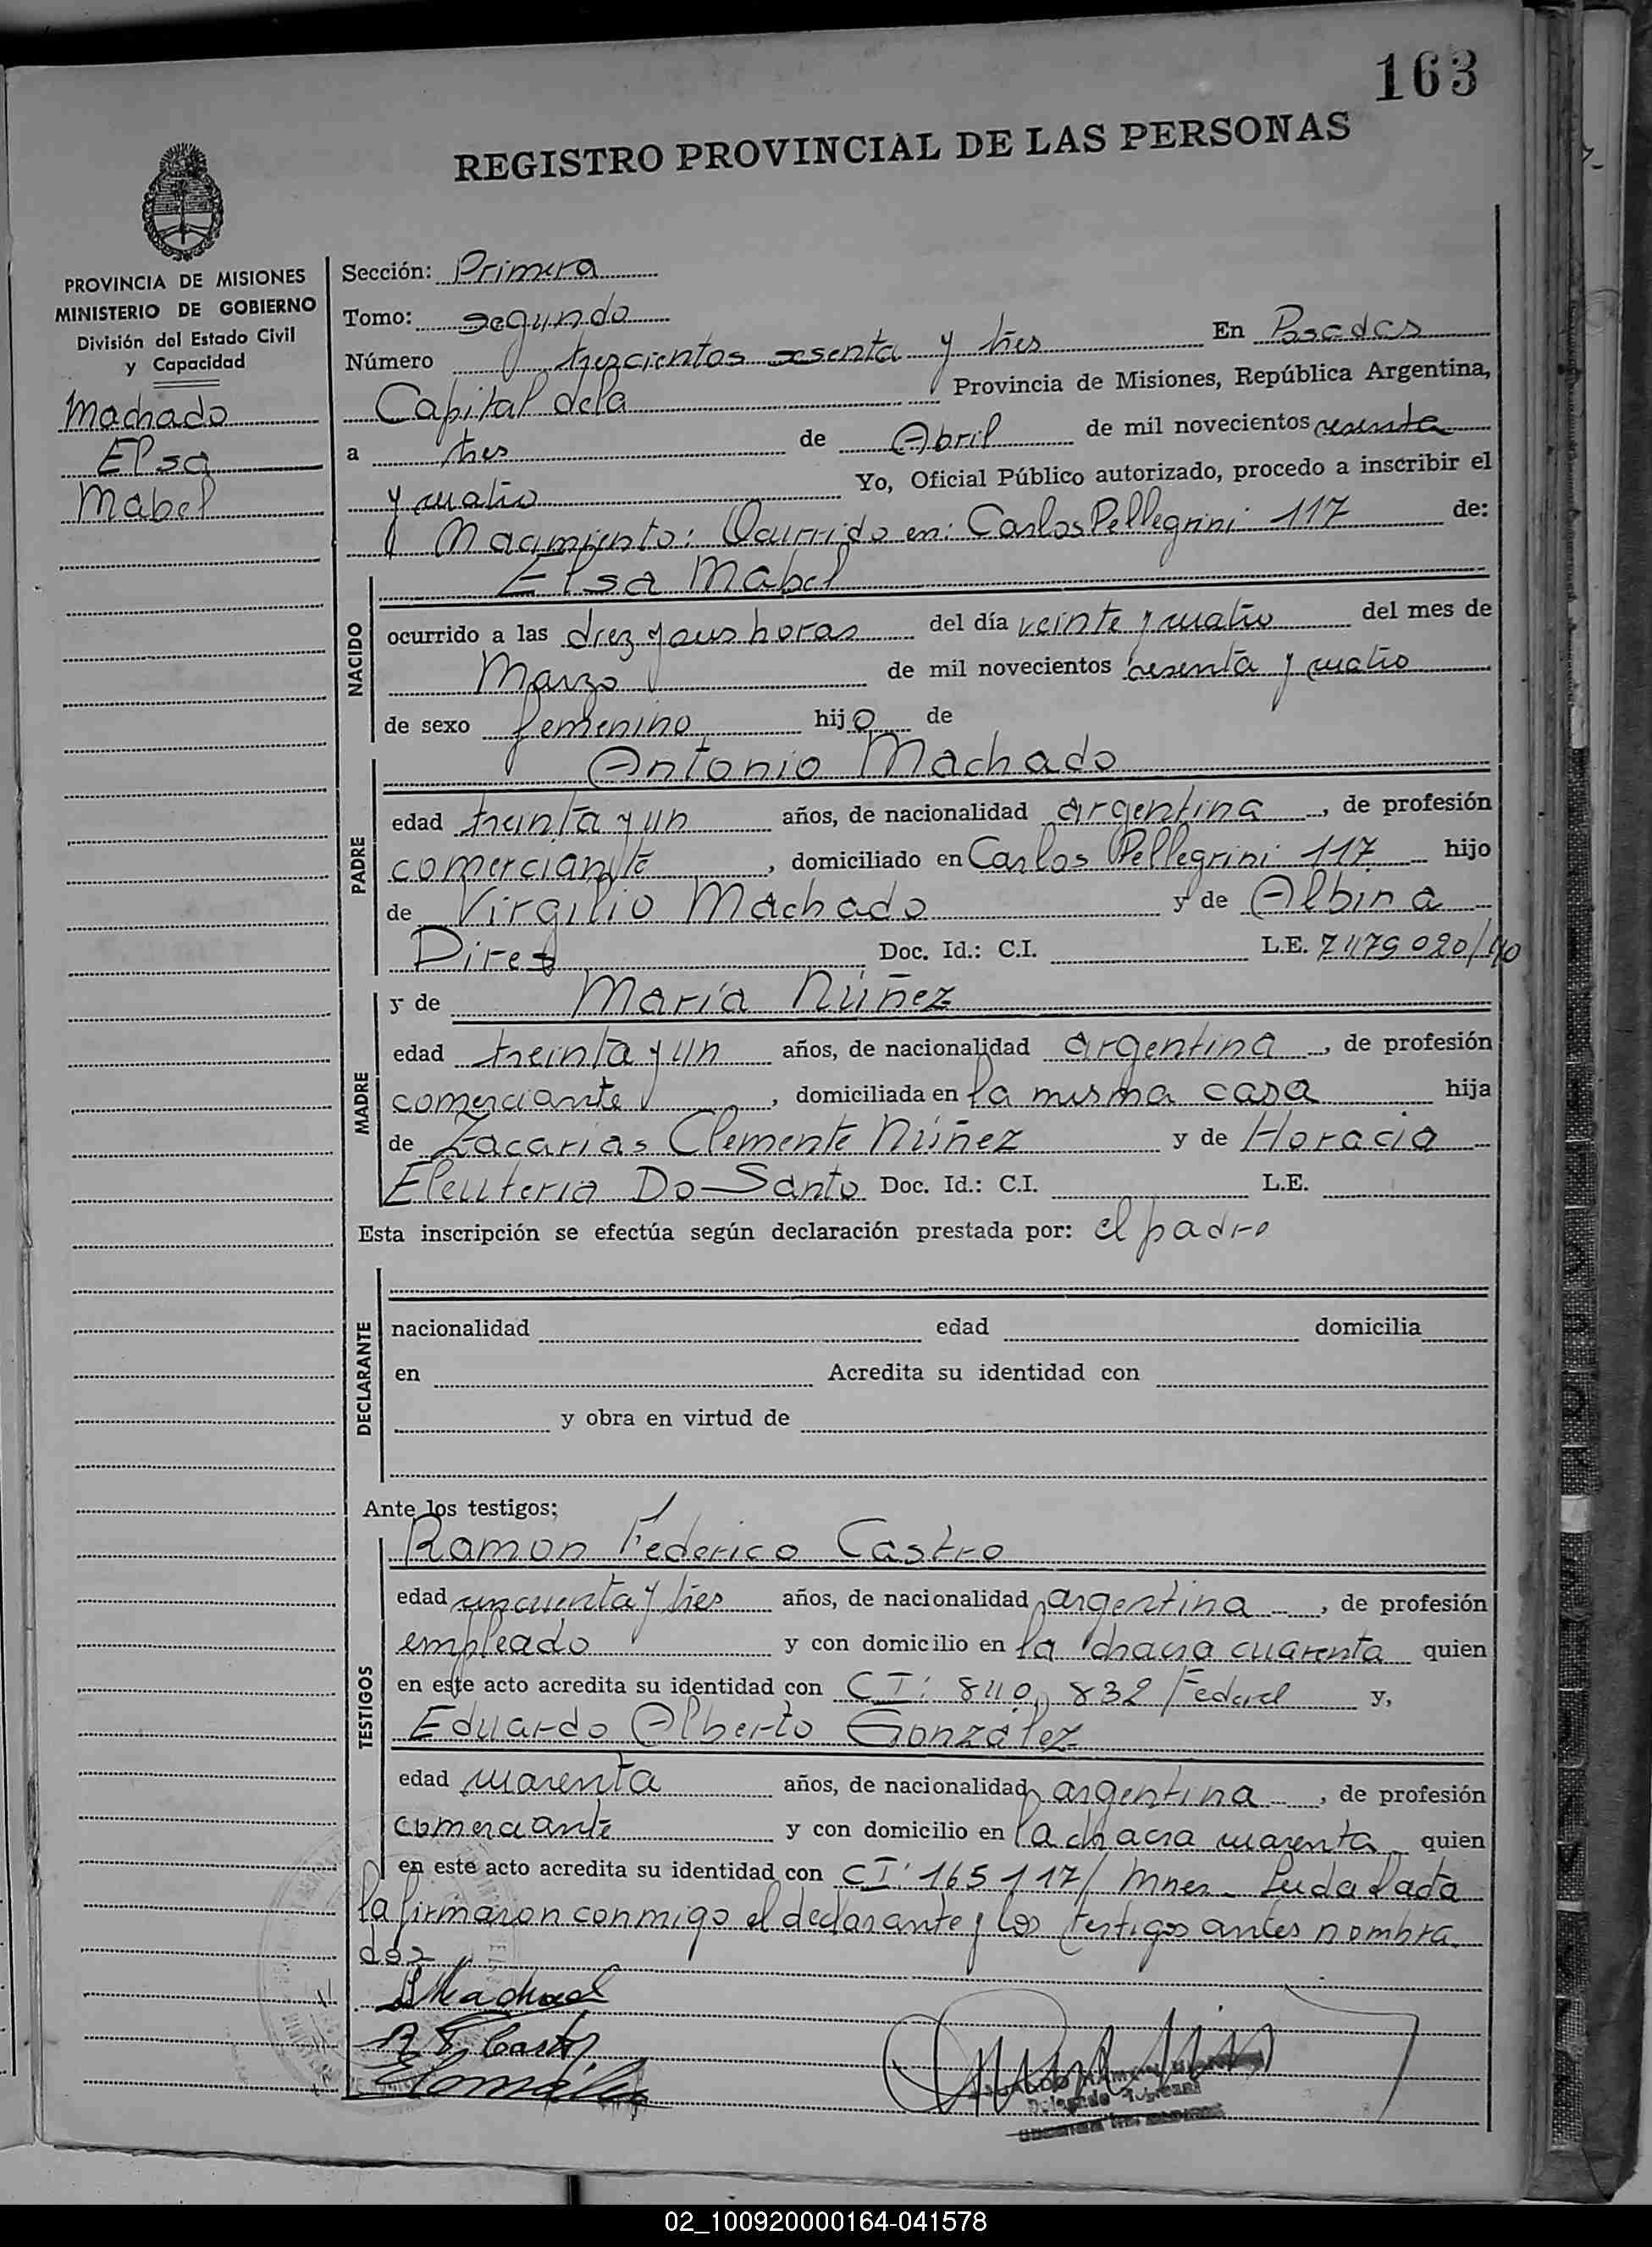 163
REGISTRO PROVINCIAL DE LAS PERSONAS
PROVINCIA DE MISIONES
MINISTERIO DE GOBIERNO
División del Estado Civil
y Capacidad
Machado
Elsa
Mabel
Sección: Primera
Tomo: segundo
Número trescientos sesenta y tres En Posadas
Capital dela Provincia de Misiones, República Argentina,
a tres de Abril de mil novecientos sesenta
y cuatro Yo, Oficial Público autorizado, procedo a inscribir el
Nacimiento: Ocurrido en: Carlos Pellegrini 117 de:
NACIDO
Elsa Mabel
ocurrido a las diez y seis horas del día veinte y cuatro del mes de
Marzo de mil novecientos sesenta y cuatro
de sexo femenino hijo de
PADRE
Antonio Machado
edad treinta y un años, de nacionalidad argentina, de profesión
comerciante, domiciliado en Carlos Pellegrini 117 hijo
de Virgilio Machado y de Albina
Doc. Id.: C.I. L.E. 7479020/40
MADRE
y de María Núñez
edad treinta y un años, de nacionalidad argentina, de profesión
comerciante, domiciliada en la misma casa hija
de Zacarías Clemente Núñez y de Horacia
Eleuteria Do-Santo Doc. Id.: C.I. L.E.
Esta inscripción se efectúa según declaración prestada por: el padre
DECLARANTE
nacionalidad edad domicilia
en Acredita su identidad con
y obra en virtud de
Ante los testigos:
TESTIGOS
Ramon Federico Castro
edad cincuenta y tres años, de nacionalidad argentina, de profesión
empleado y con domicilio en la chacra cuarenta quien
en este acto acredita su identidad con CI: 840.832/Federal y,
Eduardo Alberto González
edad cuarenta años, de nacionalidad argentina, de profesión
comerciante y con domicilio en la chacra cuarenta quien
en este acto acredita su identidad con CI: 165117/Mnes. Leida Pacta
la firmaron conmigo el declarante y los testigos antes nombra
dos
R F Castro
EGonzález
02_100920000164-041578